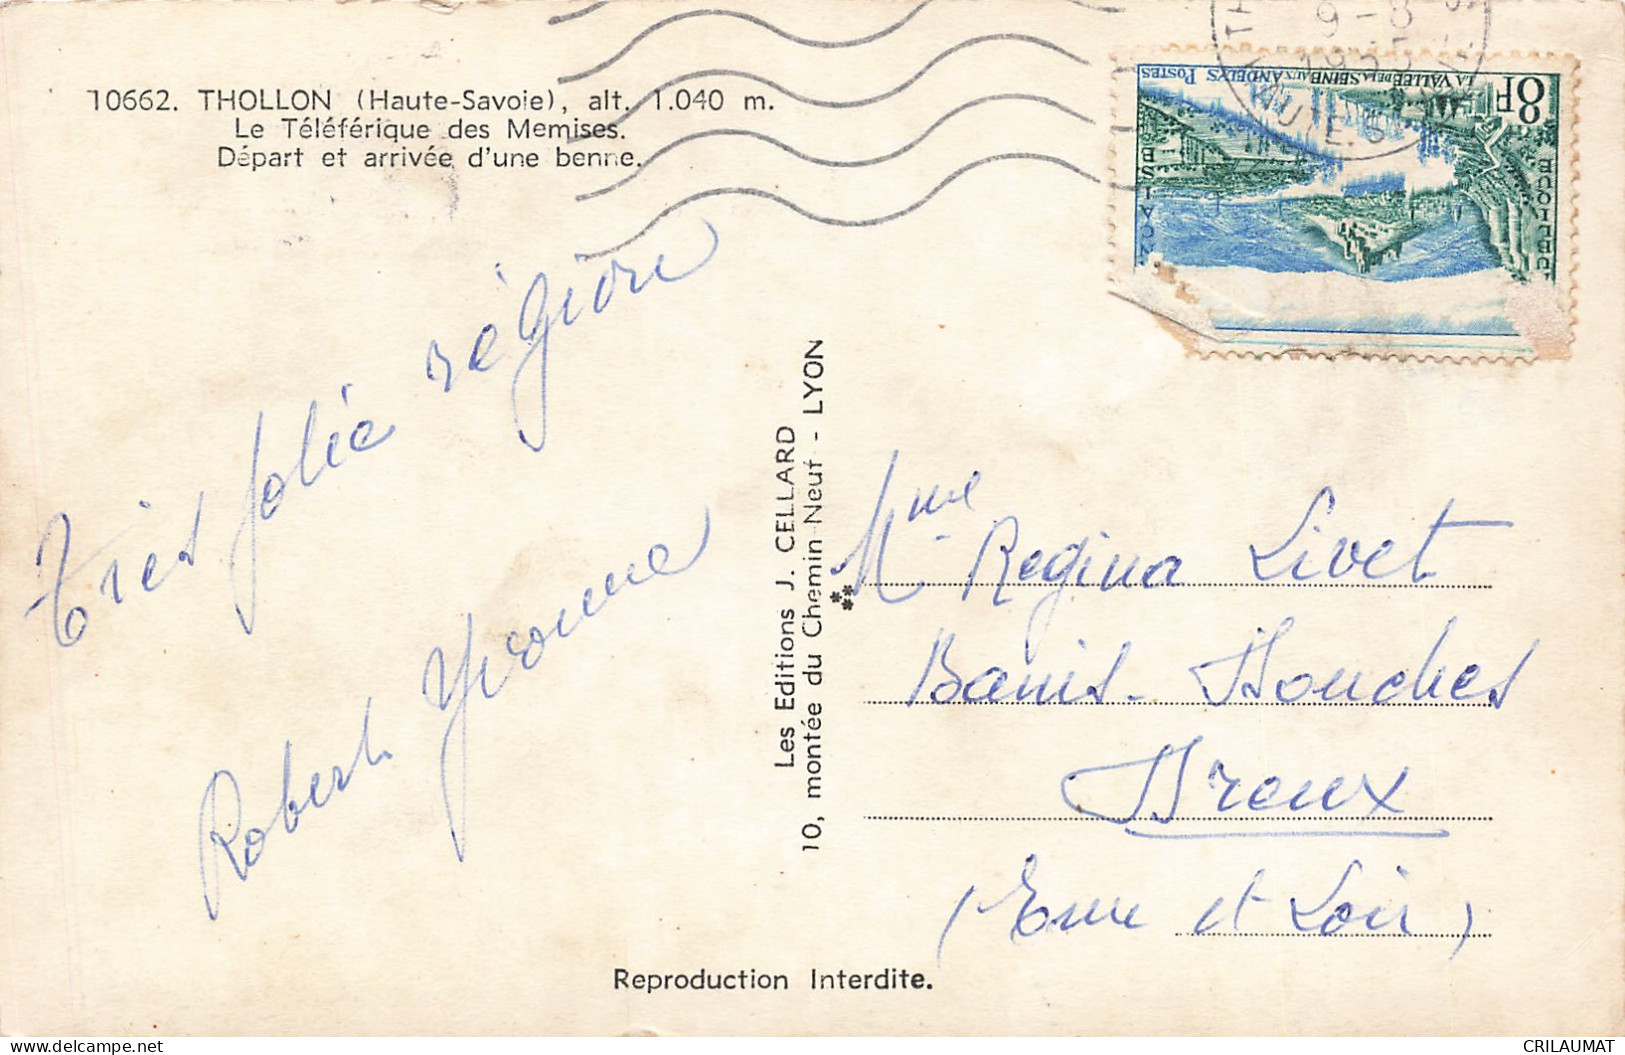 10662. THOLLON (Haute-Savoie), alt. 1.040 m.
Le Téléférique des Memises.
Départ et arrivée d'une benne.
9-8
8F
LA VALLEE DE LA SEINE AUX ANDELYS POSTES
Très jolie région
Robert Yvonne
Les Editions J. CELLARD
10, montée du Chemin-Neuf - LYON
Mme Regina Livet
Bains-Douches
Dreux
(Eure et Loir)
Reproduction Interdite.
delcampe.net
CRILAUMAT